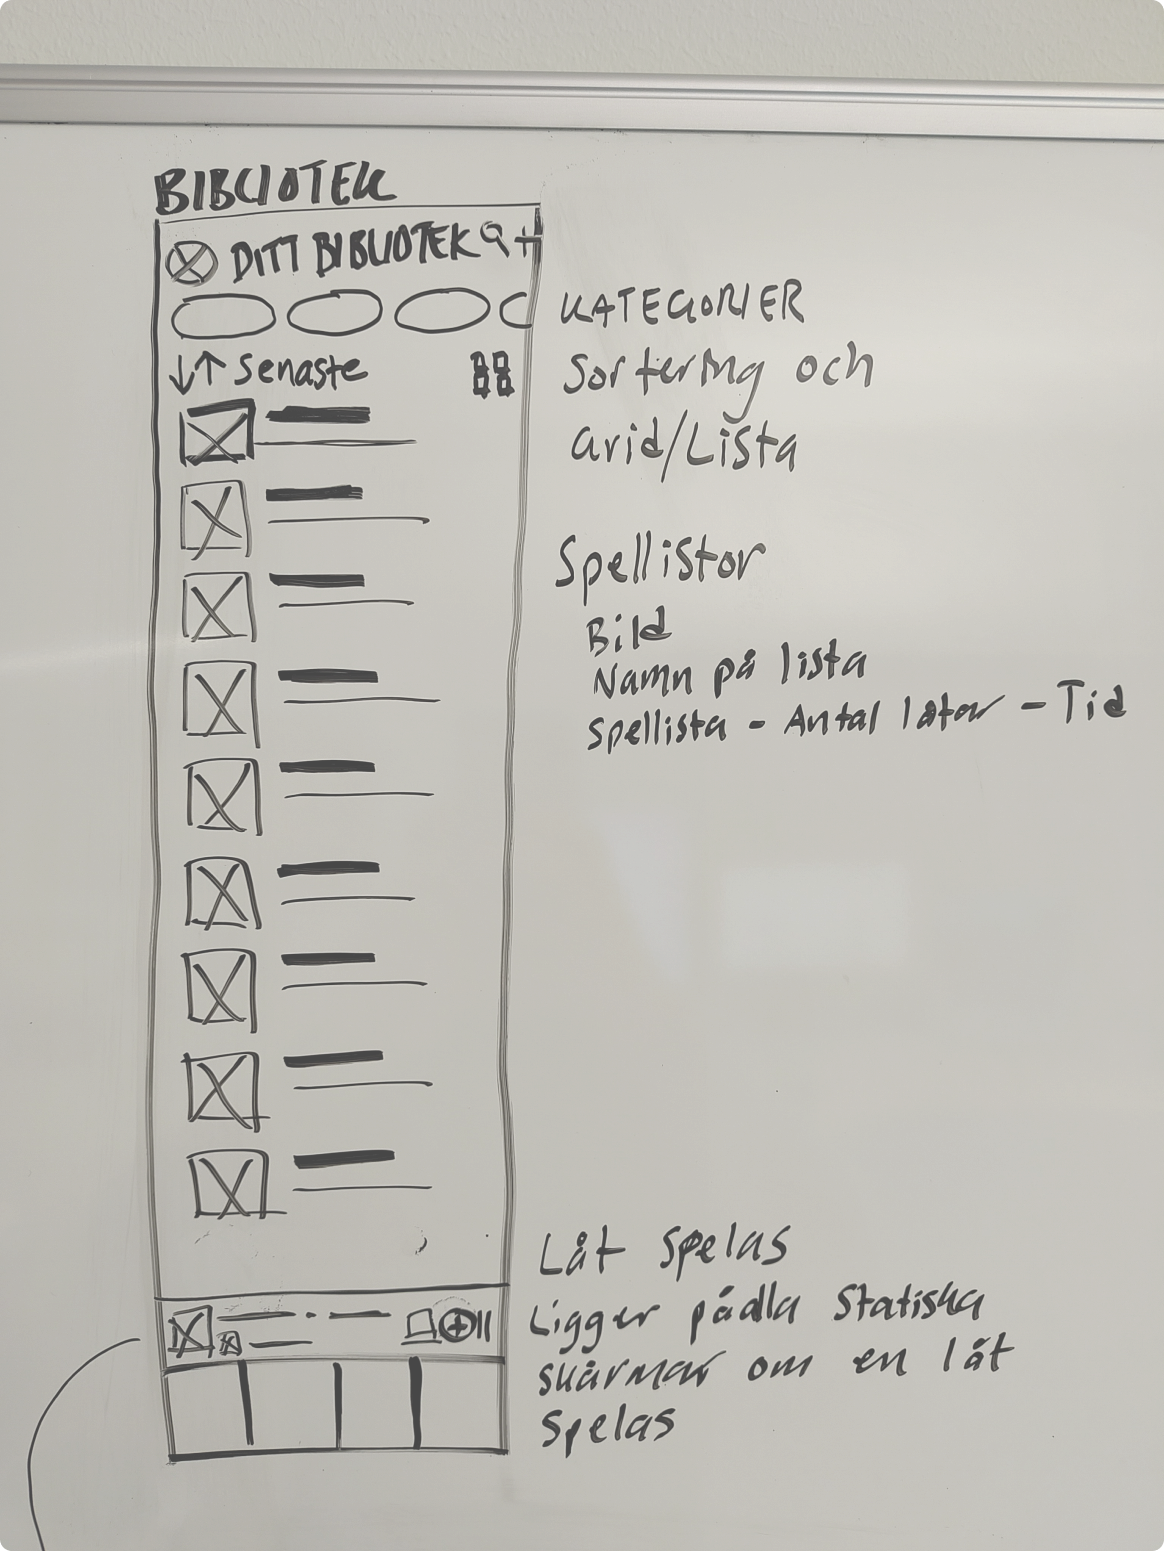 BIBLIOTEK
DITT BIBLIOTEK
KATEGORIER
↓↑ Senaste
Sortering och
Grid/Lista
Spellistor
Bild
Namn på lista
Spellista - Antal låtar - Tid
Låt spelas
Ligger på alla statiska
skärmar om en låt
spelas